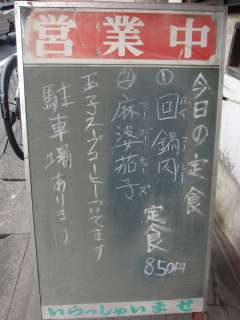 営業中
今日の定食
① 回鍋肉
② 麻婆茄子
定食
850円
玉子スープコーヒーつけてます
駐車場あります
いらっしゃいませ